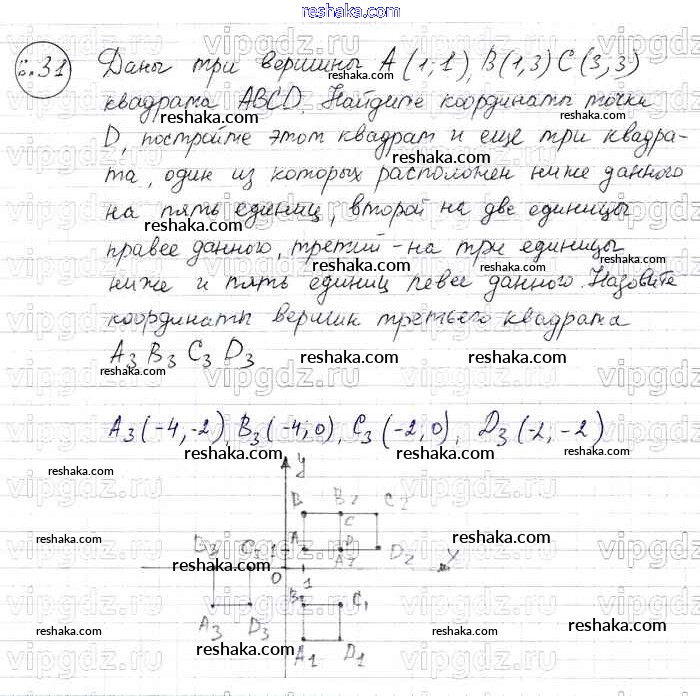 reshaka.com
6.31 Даны три вершины A(1;1), B(1,3) C(3;3)
квадрата ABCD. Найдите координаты точки
D, постройте этот квадрат и еще три квадра-
та, один из которых расположен ниже данного
на пять единиц, второй на две единицы
правее данного, третий - на три единицы
ниже и пять единиц левее данного. Назовите
координаты вершин третьего квадрата
A3 B3 C3 D3
A3(-4,-2), B3(-4,0), C3(-2,0), D3(-2,-2)
y
B B2 C2
C
A D A2 D2 x
B3 C3 1
0 1
B1 C1
A3 D3
A1 D1